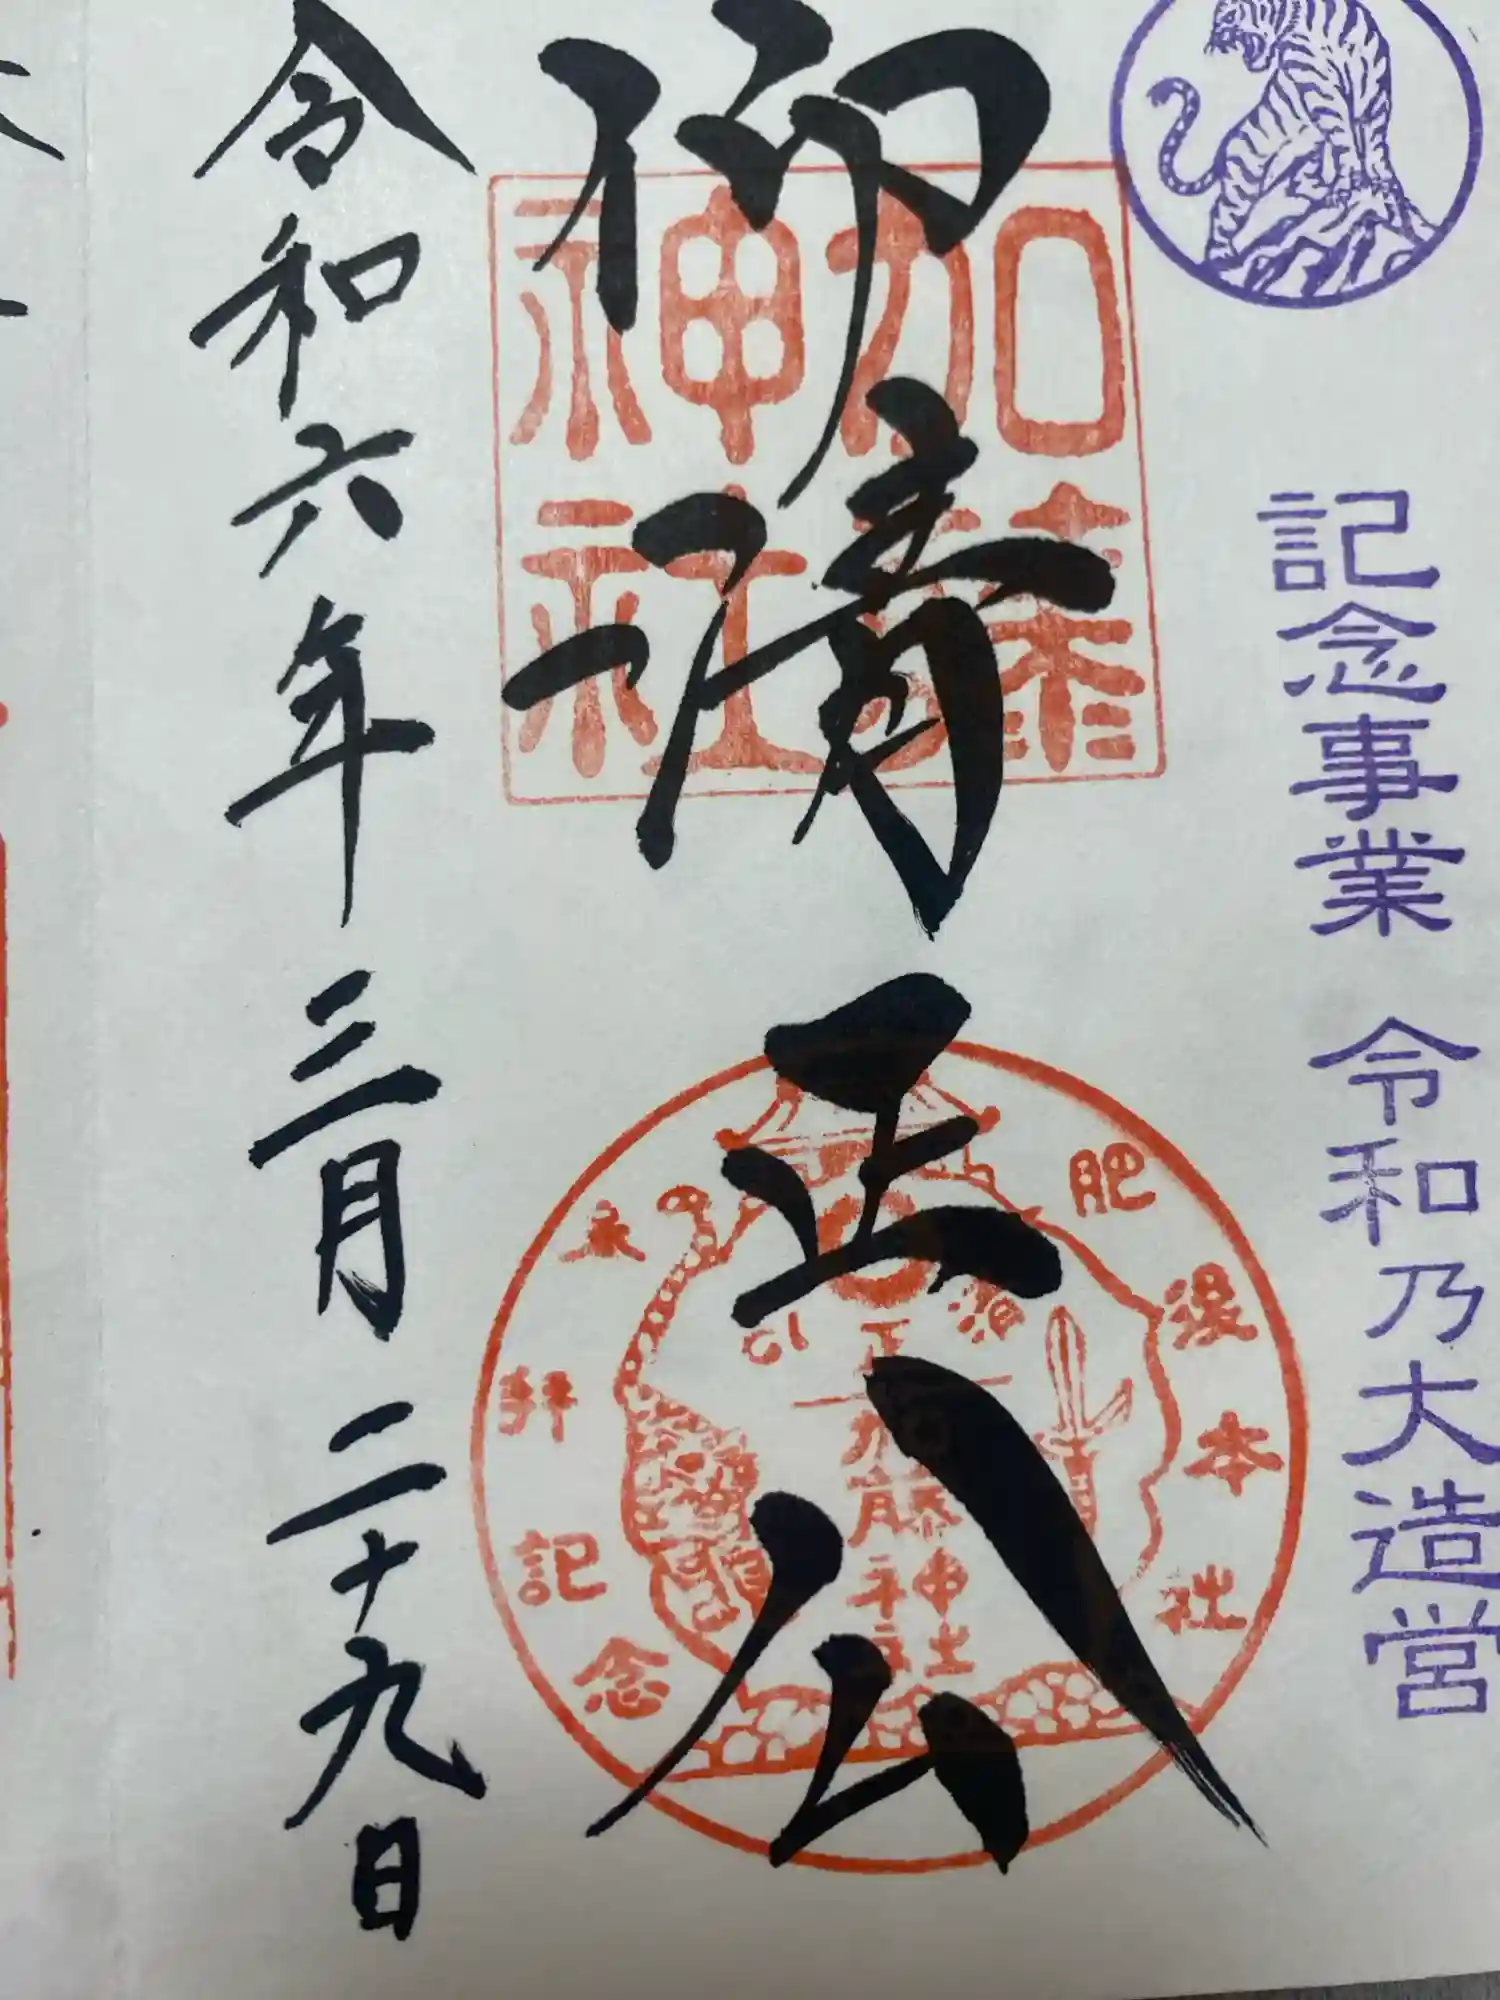 記念事業 令和乃大造営
仰清正公
加藤
神社
肥後本社
来拝記念
加藤
神社
令和六年三月二十九日